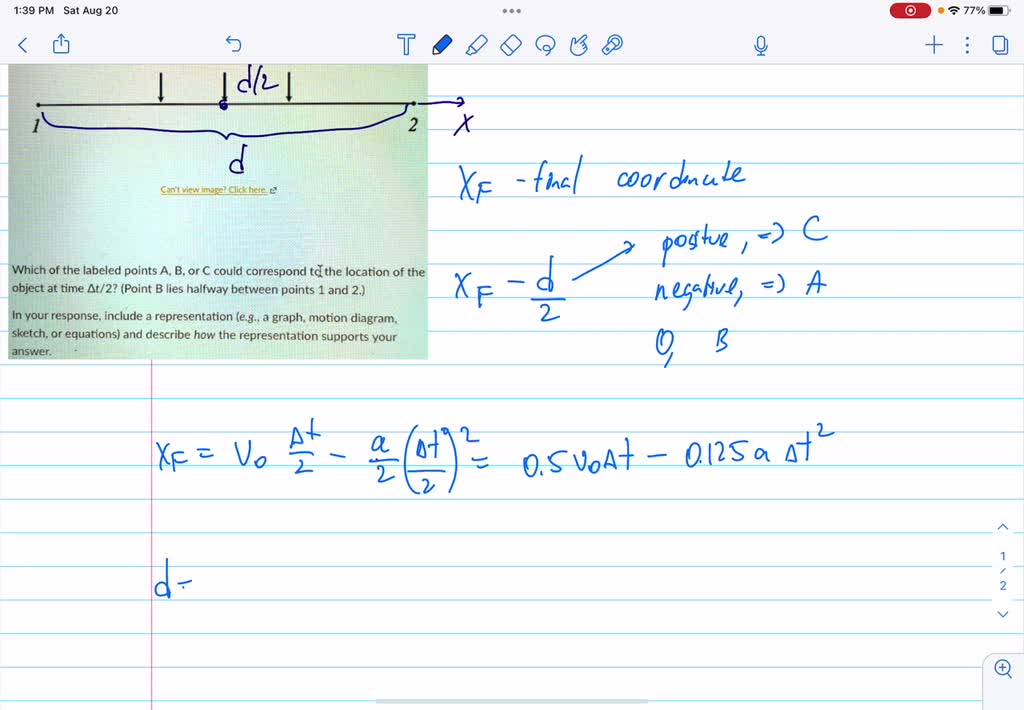 1:39 PM Sat Aug 20
77%
d/2
1
2
X
d
Can't view image? Click here.
Which of the labeled points A, B, or C could correspond to the location of the
object at time Δt/2? (Point B lies halfway between points 1 and 2.)
In your response, include a representation (e.g., a graph, motion diagram,
sketch, or equations) and describe how the representation supports your
answer.
X_F - final coordinate
X_F - d/2
positive, => C
negative, => A
0, B
X_F = V_0 Δt/2 - a/2 (Δt/2)^2 = 0.5 V_0 Δt - 0.125 a Δt^2
d =
1
/
2